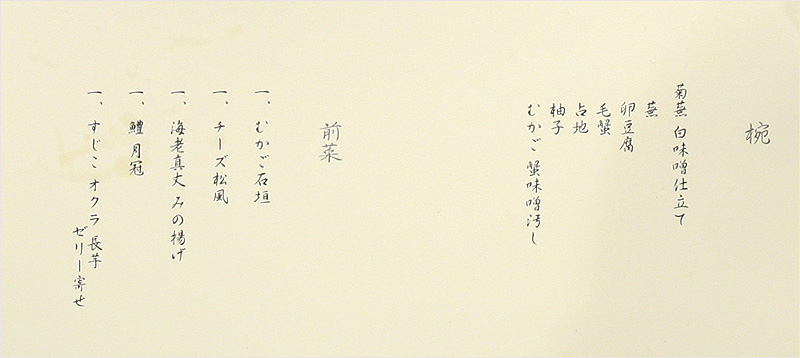 椀
菊蕪 白味噌仕立て
蕪
卵豆腐
毛蟹
占地
柚子
むかご 蟹味噌汚し
前菜
一、むかご石垣
一、チーズ松風
一、海老真丈 みの揚げ
一、鱧月冠
一、すじこ オクラ 長芋
ゼリー寄せ